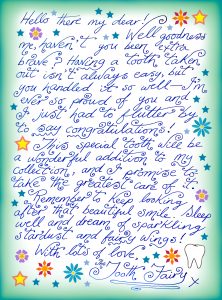 Hello there my dear! Well goodness
me, haven't you been extra
brave? Having a tooth taken
out isn't always easy, but
you handled it so well – I'm
ever so proud of you and
I just had to flutter by
to say congratulations!
This special tooth will be
a wonderful addition to my
collection, and I promise to
take the greatest care of it.
Remember to keep looking
after that beautiful smile. Sleep
well and dream of sparkling
stardust and fairy wings!
With lots of love,
Tooth Fairy x